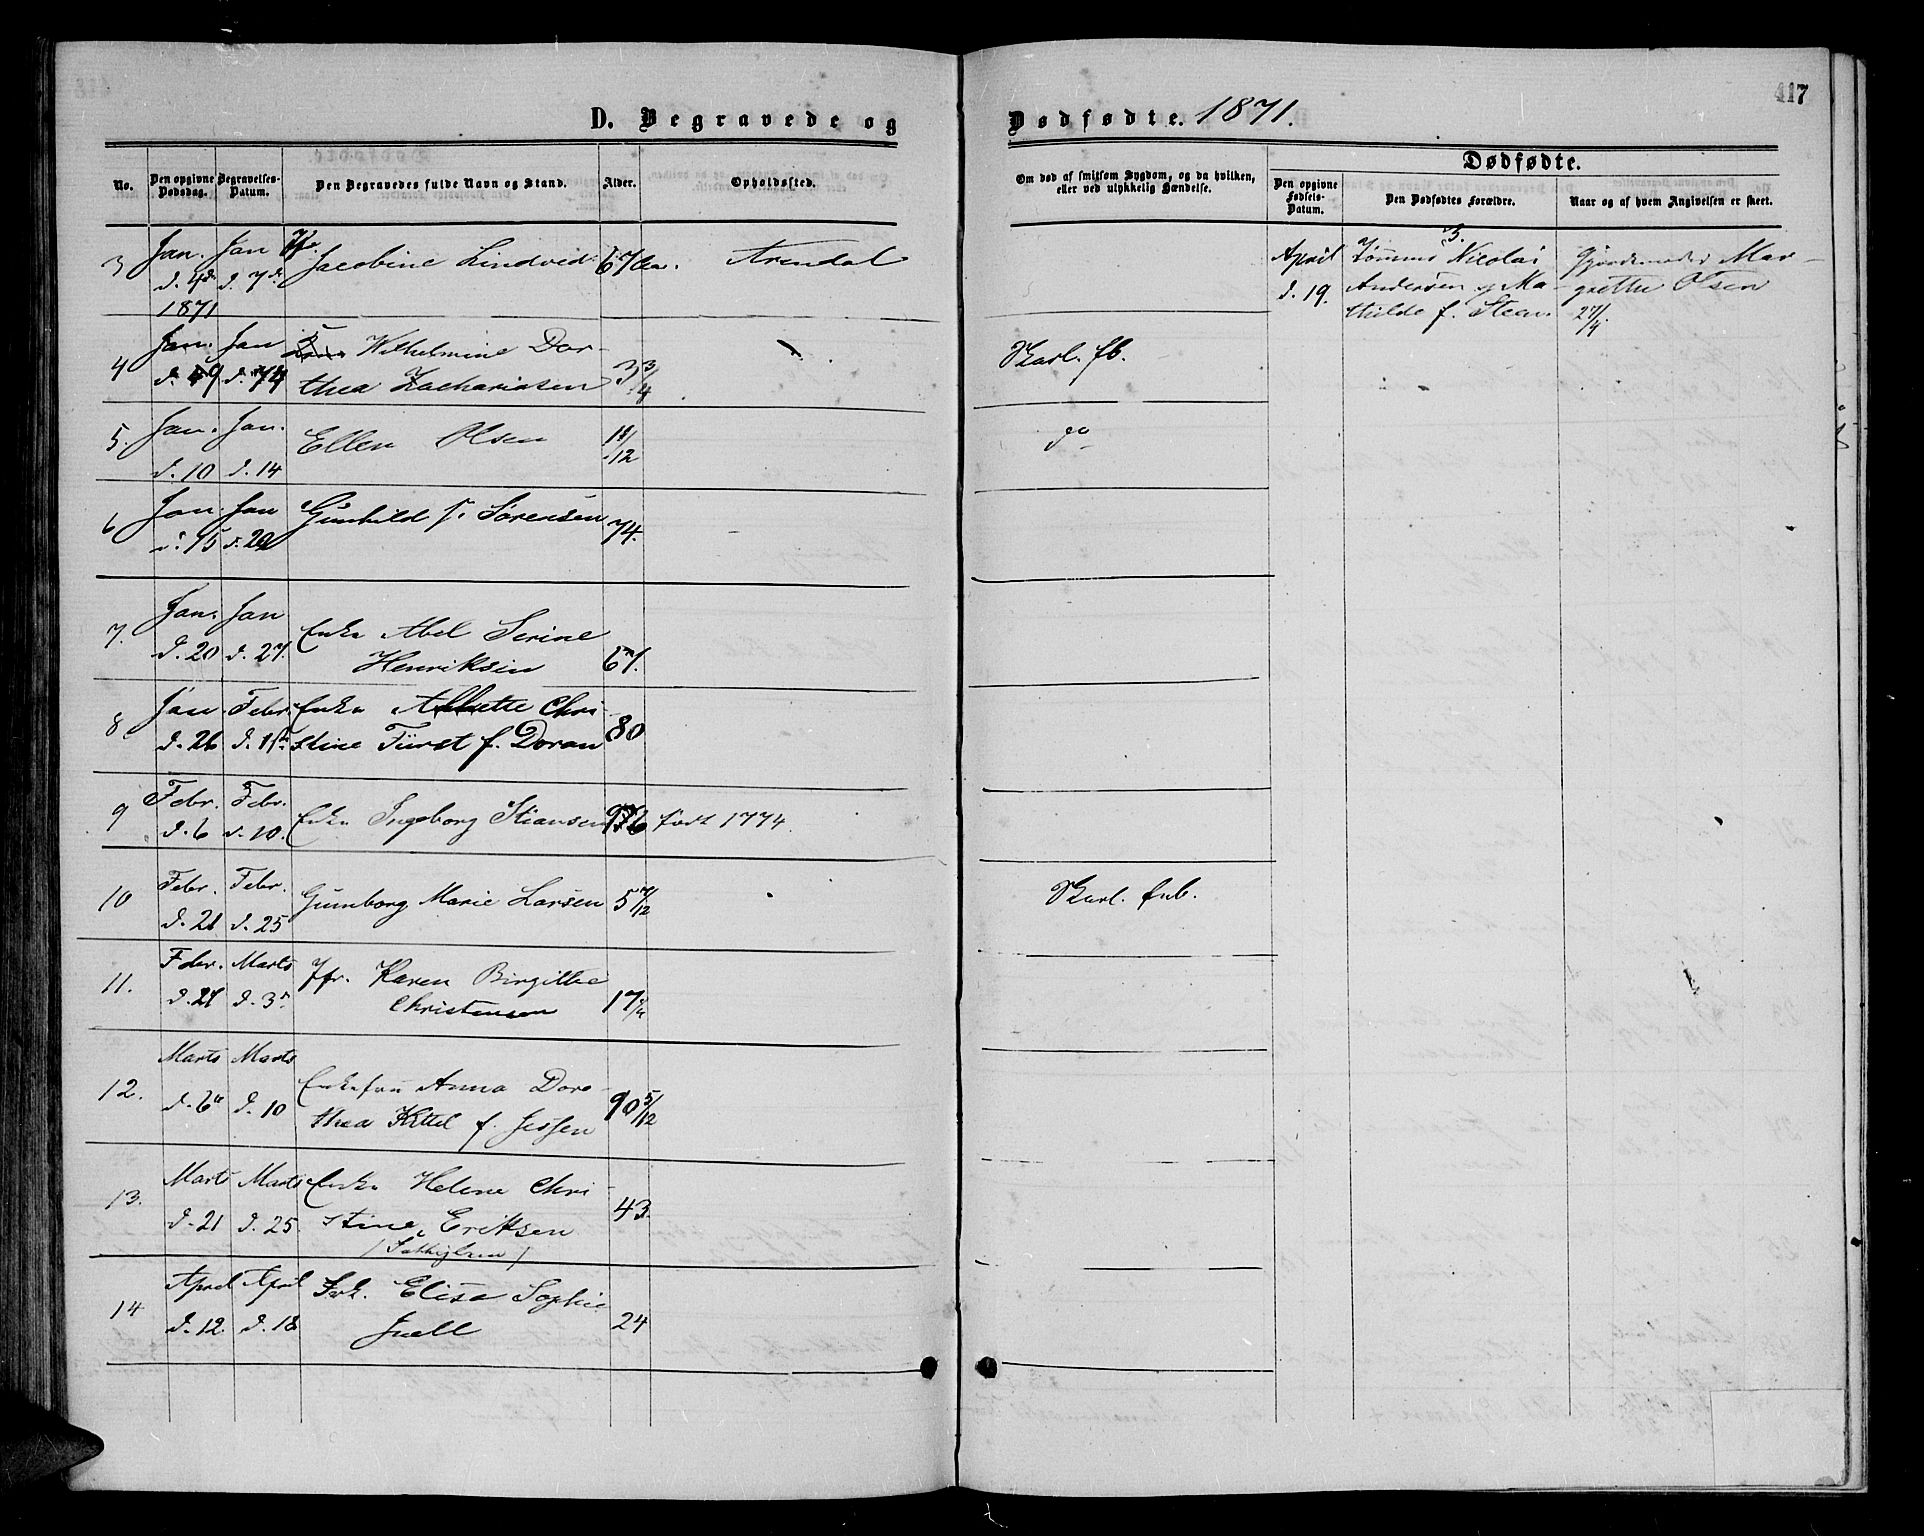 417
D. Begravede og
Dødfødte. 1871.
No.
Den opgivne Dødsdag.
Begravelses-Datum.
Den Begravedes fulde Navn og Stand.
Alder.
Opholdssted.
Om død af smitsom Sygdom, og da hvilken,
eller ved ulykkelig Hændelse.
Dødfødte.
Den opgivne Fødsels-Datum.
Den Dødfødtes Forældre.
Naar og af hvem Angivelsen er skeet.
3 Jan. Jan Jacobine Lindvid 67 Arendal
d. 4de d. 7de
1871
April Nicolai Gjordemoder Mar-
d. 19. Andersen og Ma- grethe Olsen
thilde f. Steen. 27/4.
4 Jan. Jan Wilhelmine Dor- Skarl. fb.
d. 9 d. 14 thea Zachariasen 3 3/4
5. Jan. Jan. Ellen Olsen 11/12 do
d. 10 d. 14
6 Jan. Jan Gunhild f. Sørensen 74.
d. 15 d. 20
7. Jan. Jan Enke Abel Serine
d. 20 d. 27. Henriksen 67.
8 Jan. Febr. Enke Chri-
d. 26 d. 1ste stine Fürst f. Doran 80
9 Febr. Febr. Enke Ingeborg Stiansen 96 født 1774.
d. 6 d. 10.
10 Febr. Febr. Gunborg Marie Larsen 5 7/12 Skarl. fb.
d. 21 d. 25
11. Febr. Marts Jfr. Karen Birgitte
d. 27 d. 3 Christensen 17
12. Marts Marts Enkefru Anna Doro-
d. 6 d. 10 thea Kittel f. Jessen 90 5/12
13. Marts Marts Enke Helene Chri-
d. 21 d. 25. stine Eriksen 43.
14 April April Frk. Elisa Sophie
d. 12. d. 18 Juell 24